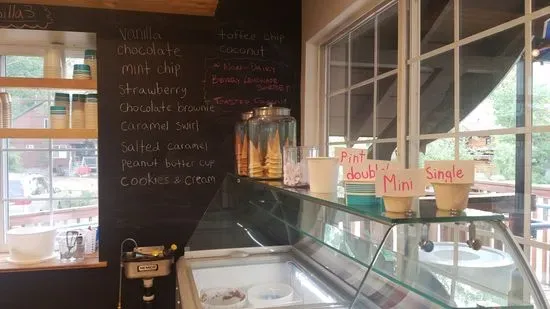 vanilla
chocolate
mint chip
strawberry
chocolate brownie
caramel swirl
salted caramel
peanut butter cup
cookies & cream
toffee chip
coconut
Non-Dairy
Berry Lemonade
Sorbet
Toasted Coconut
Pint
double
Mini
Single